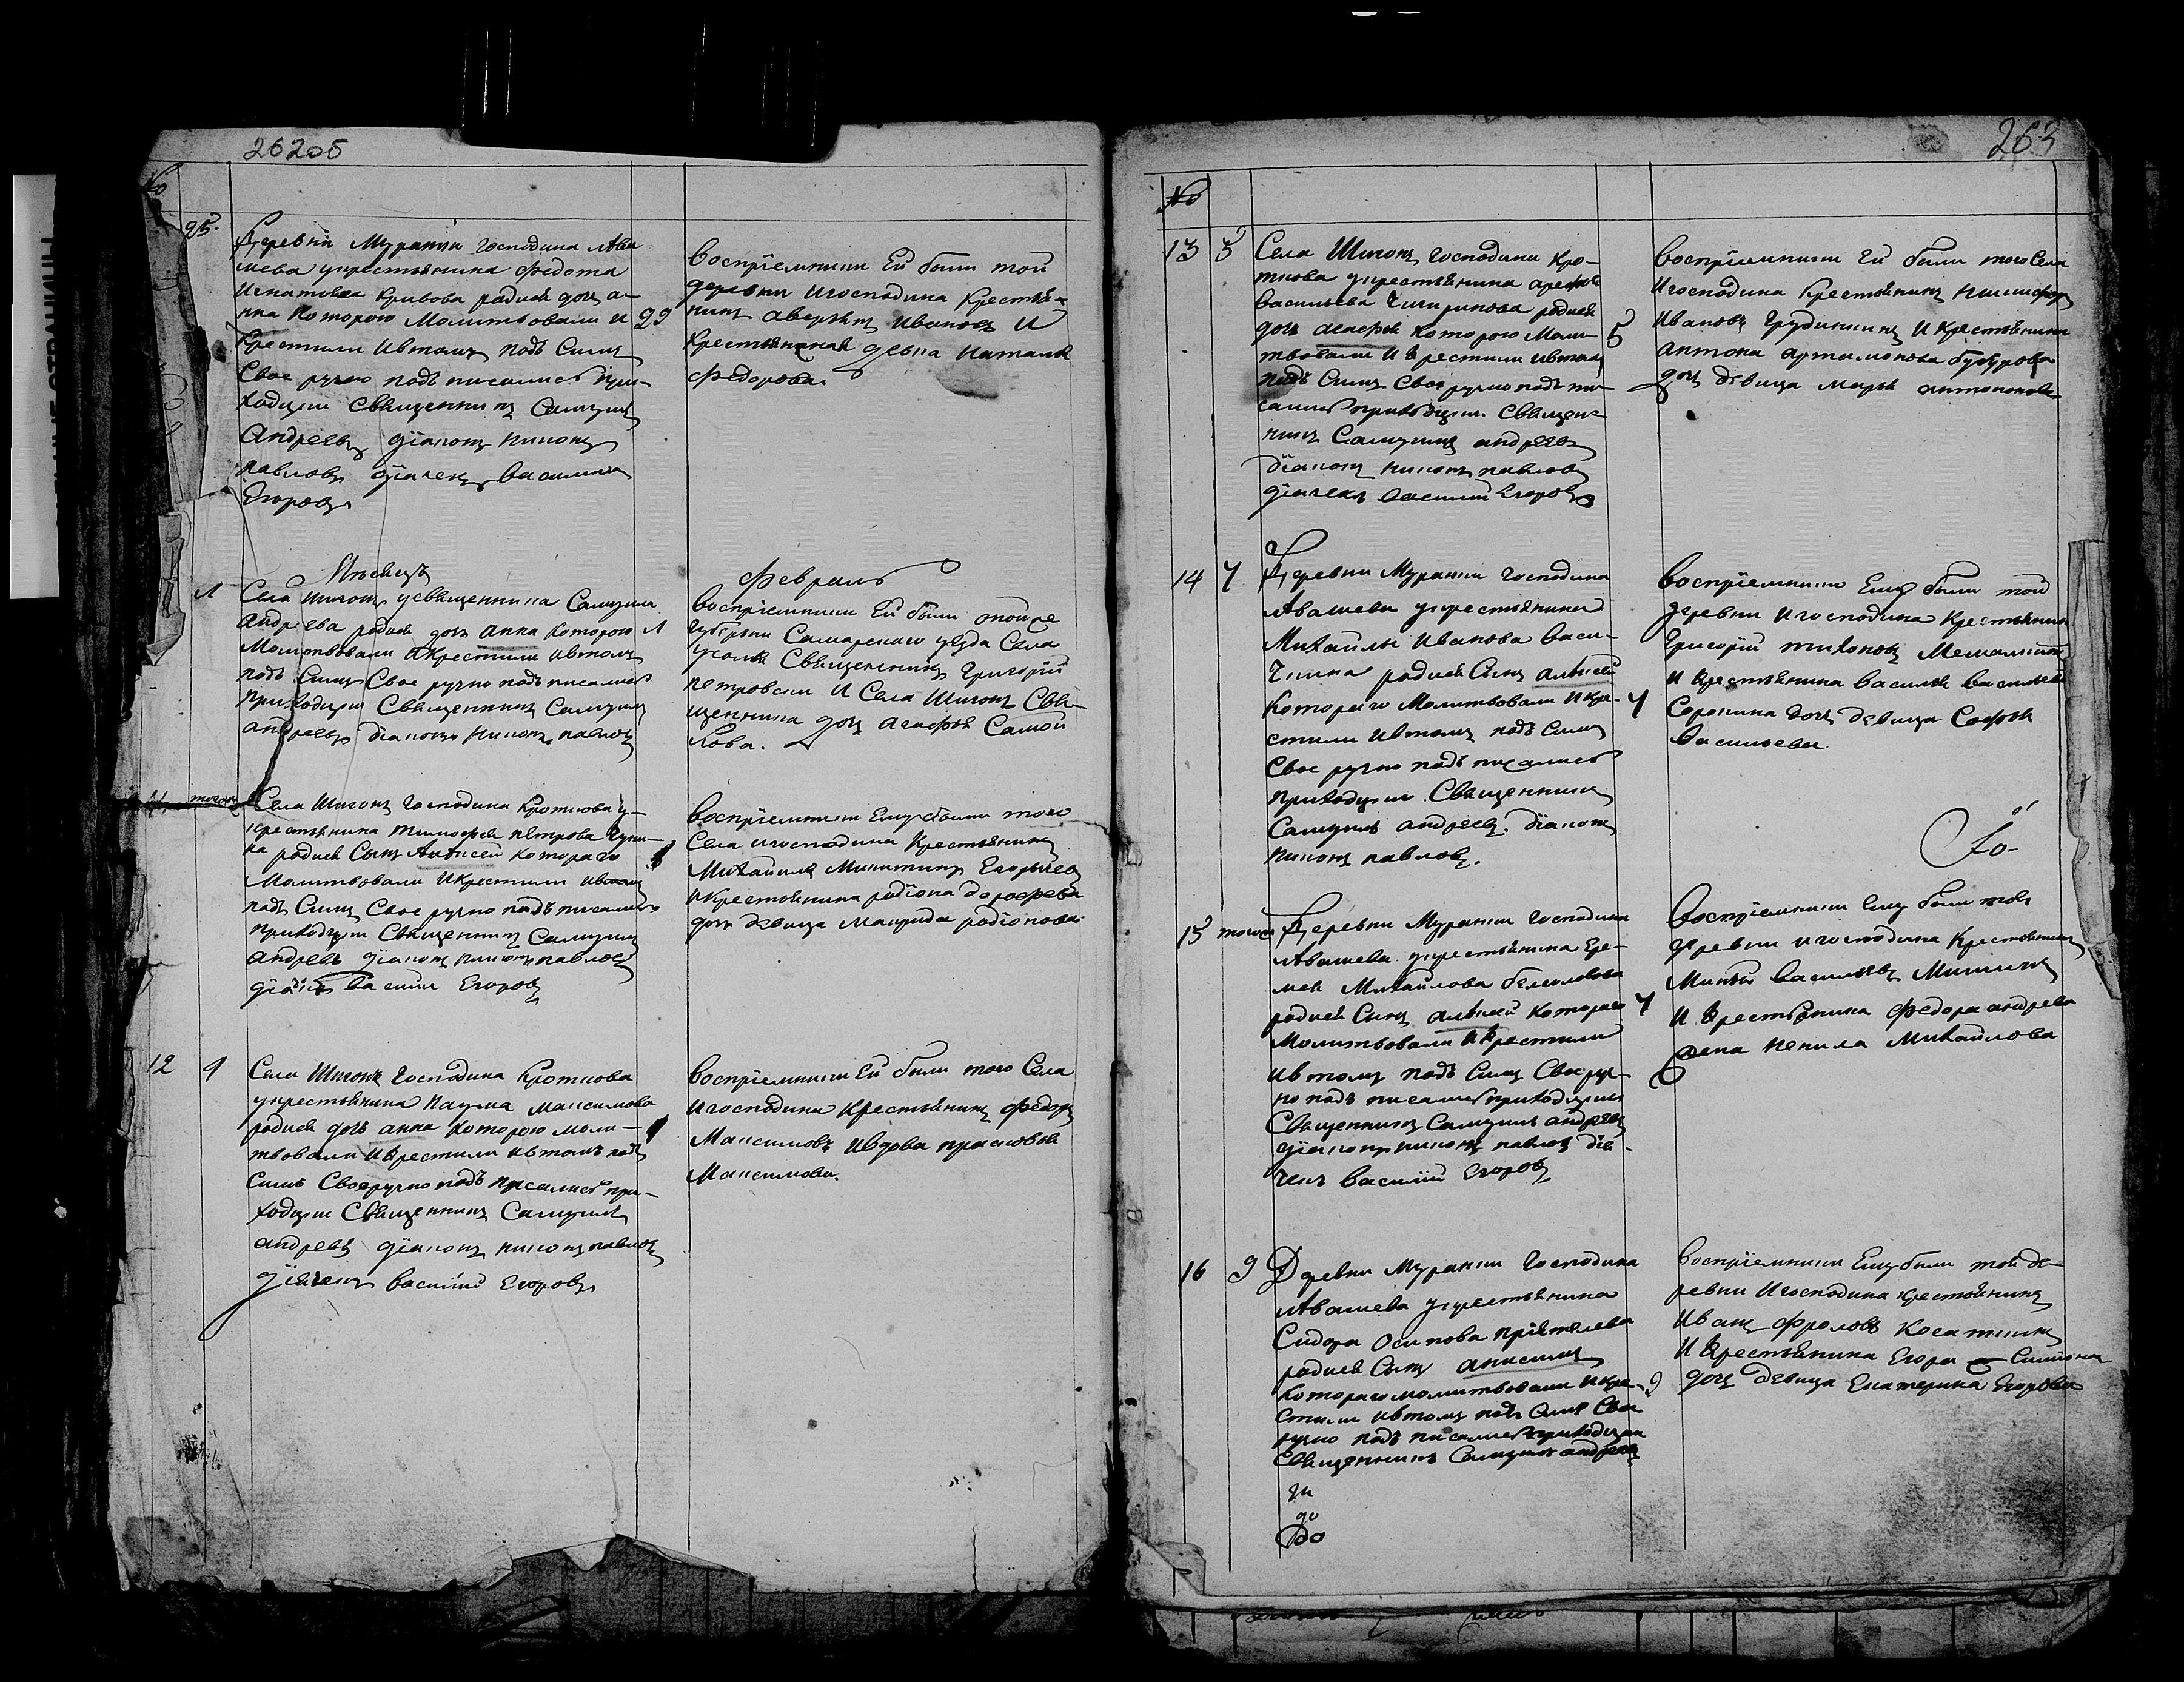 262об
№
25.
Деревни Муранки Господина Ава
шева укрестьянина Федота
Игнатова Кривова родися дочь а-
нна Которою Молитвовали и 29
Крестили ивтомъ подъ Симъ
Свое ручно подъ писались при-
ходцкии Священникъ Самуилъ
Андреевъ діаконъ Никонъ
павловъ діячекъ Василии
Егоровъ
Воспріемники Ей были той
деревни игосподина Крестья-
нинъ аверьянъ Ивановъ И
Крестьянская девка Наталья
Федорова.
Мѣсяцъ
Февраль
1
Села Шигонъ усвященника Самуила
андреева родися дочь анна Которою 1
Молитвовали иКрестили ивтомъ
подъ Симъ Свое ручно подъ писались
приходцкии Священникъ Самуилъ
андреевъ діаконъ Никонъ павловъ
Воспріемники Ей были тойже
губерни Самарскаго уезда Села
усолья Священникъ Григорій
петровъ И Села Шигонъ Свя-
щенника дочь агафья Самой
лова.
11 тогожъ
Села Шигонъ Господина Кроткова у-
крестьянина тимофея петрова
родися Сынъ Алексей Котораго
Молитвовали иКрестили ивтомъ
подъ Симъ Свое ручно подъ писались
приходцкии Священникъ Самуилъ
андреевъ діаконъ Никонъ павловъ
діячекъ Василии Егоровъ
Воспріемники Ему были того
Села игосподина Крестьянинъ
Михайла Никитинъ
иКрестьянина родіона дорофеева
дочь девица Маврида родіонова.
12 1
Села Шигонъ Господина Кроткова
укрестьянина Наума Максимова
родися дочь анна Которою моли-
твовали иКрестили ивтомъ подъ
Симъ Своеручно подъ писались при-
ходцкии Священникъ Самуилъ
андреевъ діаконъ Никонъ павловъ
діячекъ Василий Егоровъ
Воспріемники Ей были того Села
игосподина Крестьянинъ Федоръ
Максимовъ ивдова прасковья
Максимова.
263
№
13 5
Села Шигонъ Господина Кро-
ткова укрестьянина арефья
васильева Чигирикова родися
дочь агафья Которою Моли- 5
твовали иКрестили ивтомъ
подъ Симъ Свое ручно подъ пи-
сались приходцкии Священ-
никъ Самуилъ андреевъ
діаконъ Никонъ павловъ
діячекъ Василии Егоровъ
Воспріемники Ей были того Села
игосподина Крестьянинъ Никифоръ
Ивановъ Грудинкинъ иКрестьянина
антона артамонова
дочь девица Марья антонова
14 7
Деревни Муранки Господина
Авашева укрестьянина
Михайлы Иванова Васи-
чкина родися Сынъ алексей
Котораго Молитвовали икре- 7
стили ивтомъ подъ Симъ
Свое ручно подъ писались
приходцкии Священникъ
Самуилъ андреевъ. діаконъ
Никонъ павловъ.
Воспріемники Ему были той
деревни игосподина Крестьянинъ
Григорій тихоновъ
и крестьянина Василья Васильева
Сорокина дочь девица Софья
Васильева.
15 тогожъ
Деревни Муранки Господина
Авашева укрестьянина Ере-
мея Михайлова
родися Сынъ алексей Котораго 7
Молитвовали иКрестили
ивтомъ подъ Симъ Своеруч-
но подъ писались приходцкии
Священникъ Самуилъ андреевъ
діаконъ Никонъ павловъ дія-
чекъ Василий Егоровъ
Воспріемники Ему были той
деревни игосподина Крестьянинъ
Никита Васильевъ Мишинъ
и крестьянина Федора андреева
жена Ненила Михайлова
16 9
Деревни Муранки Господина
Авашева укрестьянина
Сидора Осипова Пріятелева
родися Сынъ анисимъ
Котораго молитвовали икре- 9
стили ивтомъ подъ Симъ Свое
ручно подъ писались приходцкии
Священникъ Самуилъ андреевъ
ди
до
До
Воспріемники Ему были той де-
ревни игосподина крестьянинъ
Иванъ Фроловъ Косаткинъ
и крестьянина Егора
дочь девица Екатерина Егорова